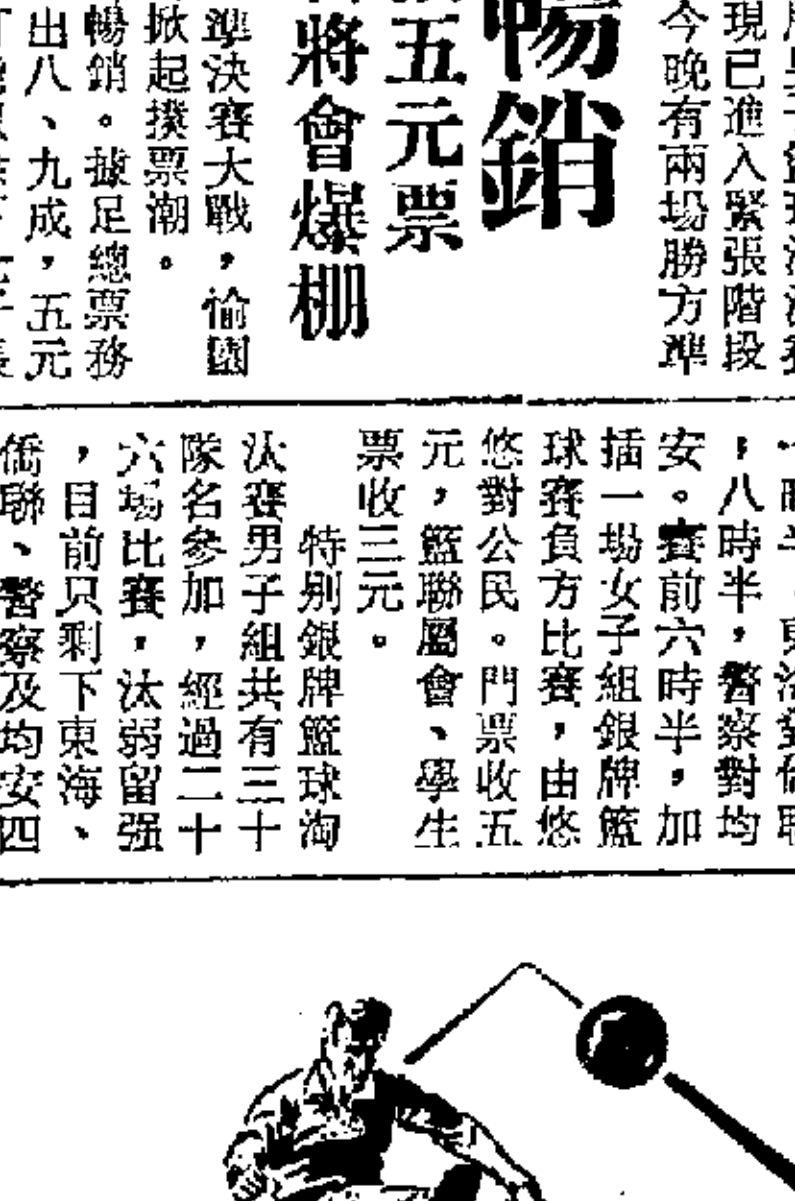 現已進入緊張階段
今晚有兩場勝方準
暢銷
五元票
將會爆棚
準決賽大戰，愉園
掀起撲票潮。
暢銷。據足總票務
出八、九成，五元
，八時半，警察對均
安。賽前六時半，加
插一場女子組銀牌籃
球賽負方比賽，由悠
悠對公民。門票收五
元，籃聯屬會、學生
票收三元。
特別銀牌籃球淘
汰賽男子組共有三十
隊名參加，經過二十
六場比賽，汰弱留强
，目前只剩下東海、
僑聯、警察及均安四